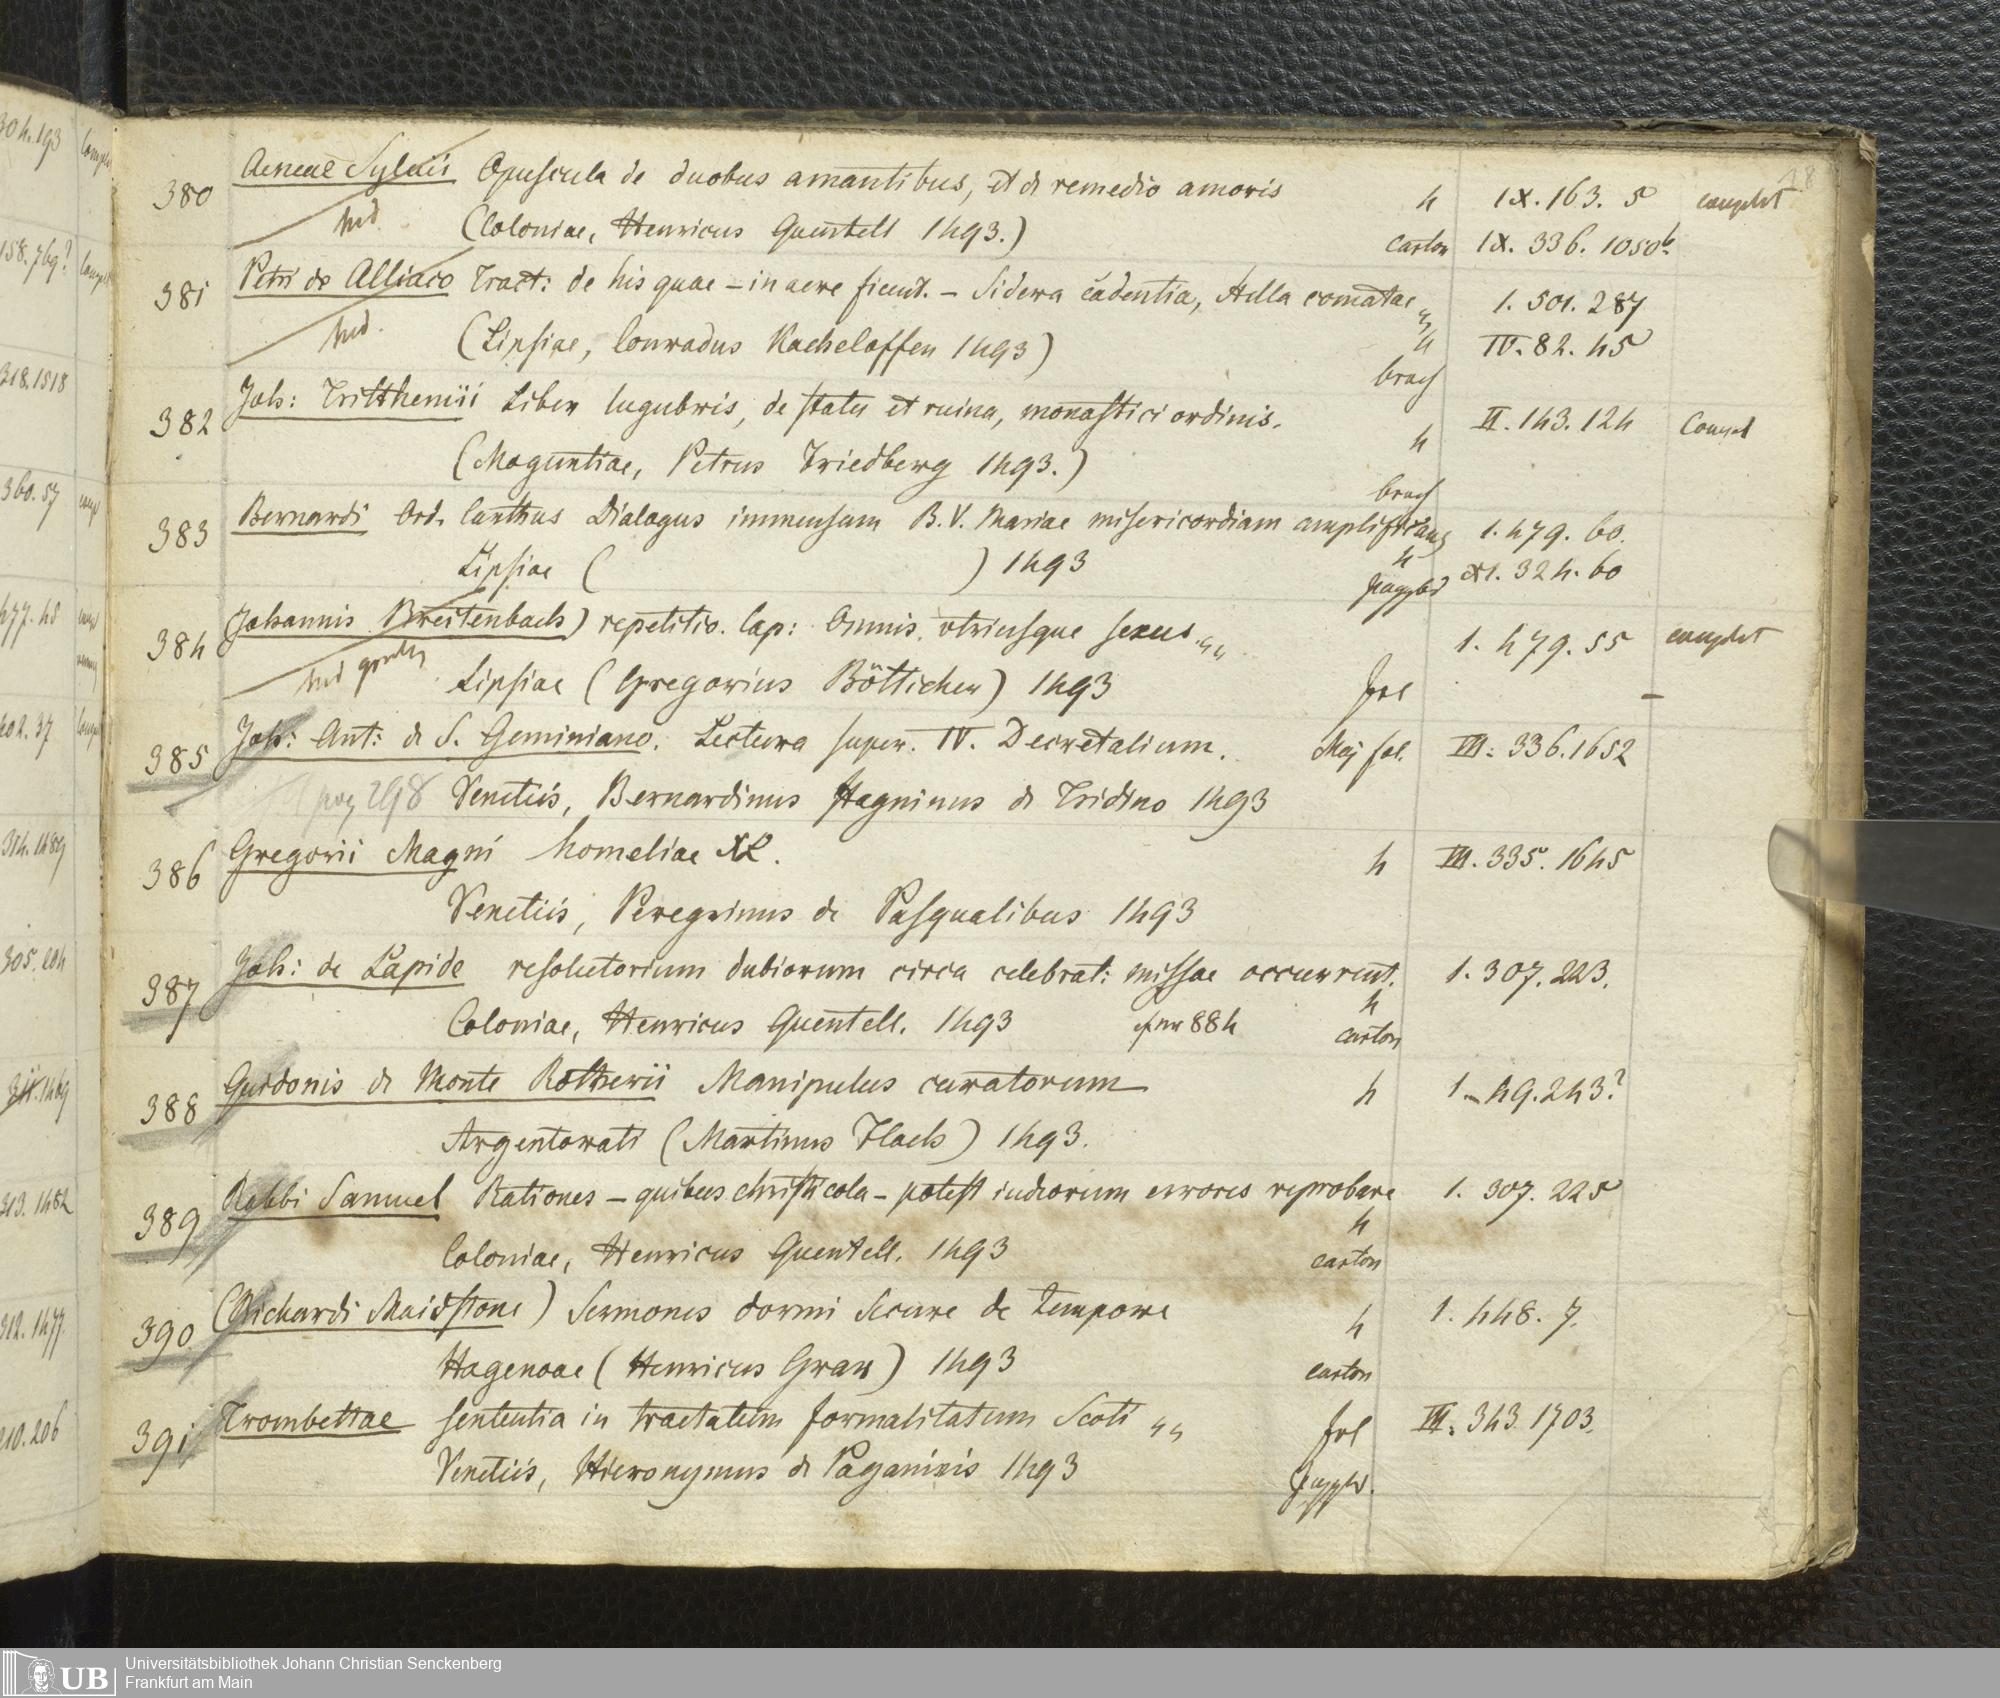 48
380 Aeneae Sylvii Opuscula de duobus amantibus, et de remedio amoris 4 IX. 163. 5 complet
(Coloniae, Henricus Quentell 1493.) carton IX. 336. 1050b.
381 Petri de Alliaco Tract: de his quae – in aere fiunt. – Sidera cadentia, stella comatae 1. 501. 287
(Lipsiae, Conradus Kacheloffen 1493) 4 IV. 82. 45
broch
382 Joh: Tritthemii Liber lugubris, de statu et ruina, monastici ordinis. 4 II. 143. 124 Compl
(Moguntiae, Petrus Friedberg 1493.)
broch
383 Bernardi Ord. Canthus Dialogus immensam B. V. Mariae misericordiam amplificans 1. 479. 60.
Lipsiae ( ) 1493 4 XI. 324. 60
384 Johannis Breitenbach) repetitio. Cap: Omnis. utriusque sexus „„ 1. 479. 55 complet
Lipsiae (Gregorius Bötticher) 1493 fol –
385 Joh: Ant: de S. Geminiano. Lectura super. IV. Decretalium. Maj fol. III. 336. 1652
pag 298 Venetiis, Bernardinus Stagninus de Tridino 1493
386 Gregorii Magni homeliae XL. 4 III. 335. 1645
Venetiis, Peregrinus de Pasqualibus 1493
387 Joh: de Lapide resolutorium dubiorum circa celebrat: missae occurrent. 1. 307. 223.
4
Coloniae, Henricus Quentell. 1493 cf nr 884 carton
388 Guidonis de Monte Rotherii Manipulus curatorum 4 1. 49. 243?
Argentorati (Martinus Flach) 1493.
389 Rabbi Samuel Rationes – quibus christicola – potest iudeorum errores reprobare 1. 307. 225
4
Coloniae, Henricus Quentell. 1493 carton
390 (Richardi Maidstone) Sermones dormi secure de tempore 4 1. 448. 7.
Hagenoae (Henricus Gran) 1493 carton
391 Trombettae sententia in tractatum formalitatum Scoti „„ fol III. 343. 1703.
Venetiis, Hieronymus de Paganinis 1493
304. 193
158. 769?
318. 1518
360. 57
477. 45
402. 37
314. 1489
305. 204
313. 1482
312. 1477
210. 206
UB
Universitätsbibliothek Johann Christian Senckenberg
Frankfurt am Main